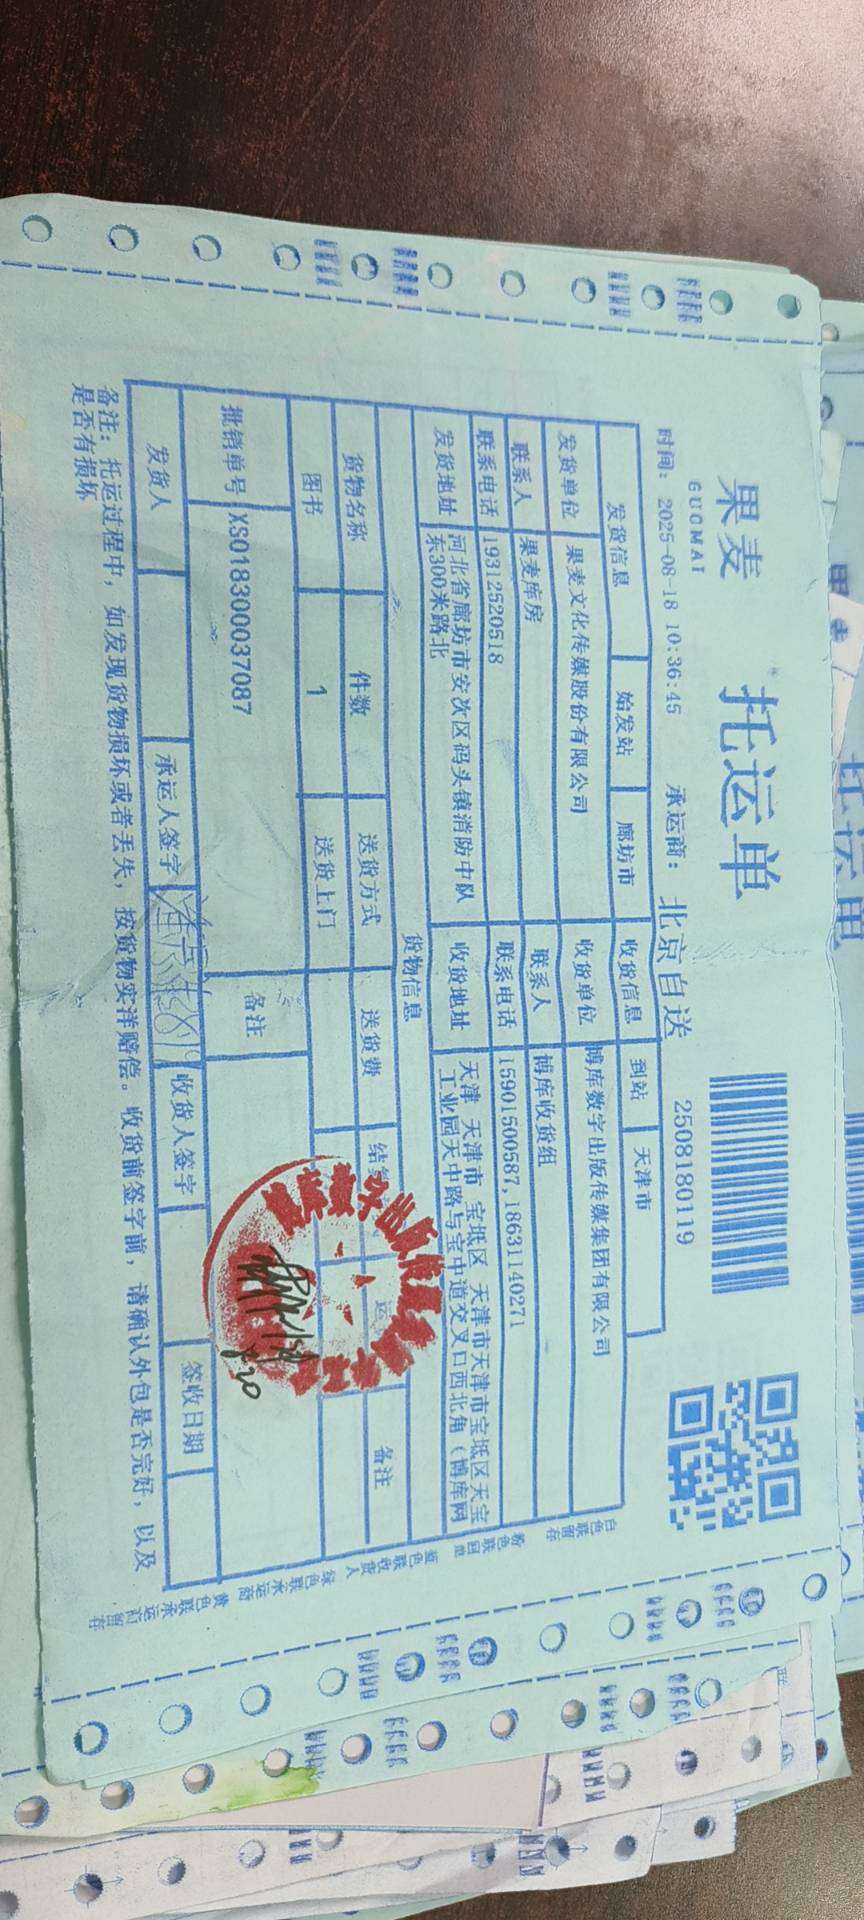 果麦
GUOMAI
托运单
2508180119
时间: 2025-08-18 10:36:45 承运商: 北京自送
发货信息 始发站 廊坊市 收货信息 到站 天津市
发货单位 果麦文化传媒股份有限公司 收货单位 博库数字出版传媒集团有限公司
联系人 果麦库房 联系人 博库收货组
联系电话 19312520518 联系电话 15901500587,18631140271
发货地址 河北省廊坊市安次区码头镇消防中队
东300米路北
收货地址 天津 天津市 宝坻区 天津市天津市宝坻区天宝
工业园天中路与宝中道交叉口西北角(博库网
货物信息
货物名称 件数 送货方式 送货费 结 运 备注
图书 1 送货上门
批销单号 XS018300037087 备注
8.20
发货人 承运人签字 收货人签字 签收日期
备注: 托运过程中, 如发现货物损坏或者丢失, 按货物实洋赔偿。收货前签字前, 请确认外包是否完好, 以及
是否有损坏
白色联留存
粉色联回单
蓝色联收货人
绿色联承运商
黄色联承运门留存
托运单